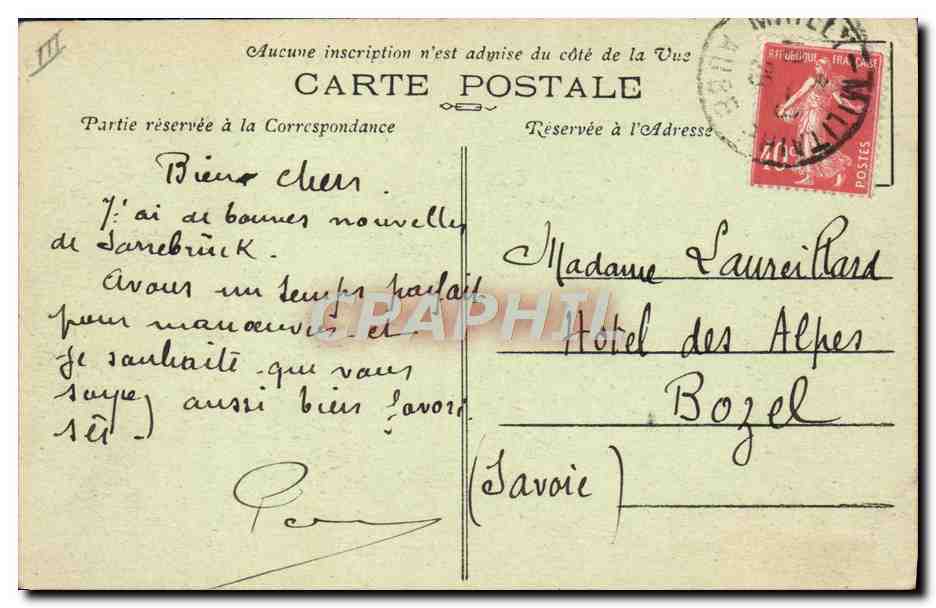 III
Aucune inscription n'est admise du côté de la Vue
CARTE POSTALE
Partie réservée à la Correspondance
Réservée à l'Adresse
MAILLY-MILITAIRE
AUBE
RÉPUBLIQUE FRANÇAISE
10c
POSTES
Bien chers.
J'ai de bonnes nouvelles
de Sarrebrück.
Avons un temps parfait
pour manœuvres et
je souhaite que vous
soyez aussi bien favori
sés.
Madame Laureillard
Hôtel des Alpes
Bozel
(Savoie)
CPAPHIL